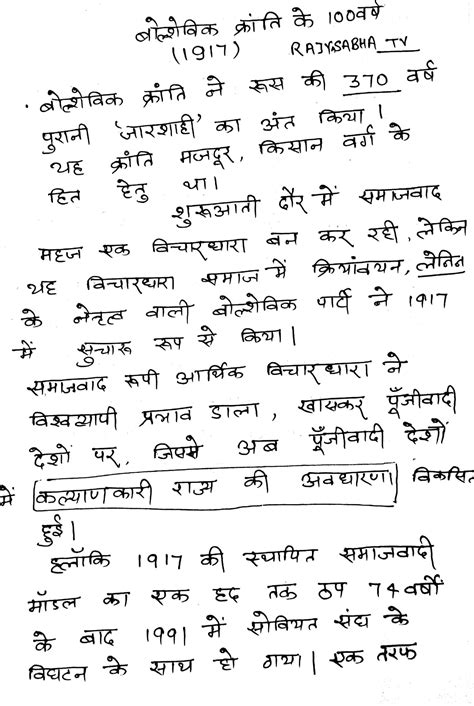 बोल्शेविक क्रांति के 100 वर्ष
(1917) RAJYSABHA TV
· बोल्शेविक क्रांति ने रूस की 370 वर्ष
पुरानी 'जारशाही' का अंत किया।
यह क्रांति मजदूर, किसान वर्ग के
हित हेतु था।
शुरूआती दौर में समाजवाद
महज एक विचारधारा बन कर रही, लेकिन
यह विचारधारा समाज में क्रियांवयन, लेनिन
के नेतृत्व वाली बोल्शेविक पार्टी ने 1917
में सुचारू रूप से किया।
समाजवाद रूपी आर्थिक विचारधारा ने
विश्वव्यापी प्रभाव डाला, खासकर पूँजीवादी
देशों पर, जिससे अब पूँजीवादी देशों
में कल्याणकारी राज्य की अवधारणा विकसित
हुई।
हालाँकि 1917 की स्थापित समाजवादी
मॉडल का एक हद तक ठप 74 वर्षों
के बाद 1991 में सोवियत संघ के
विघटन के साथ हो गया। एक तरफ